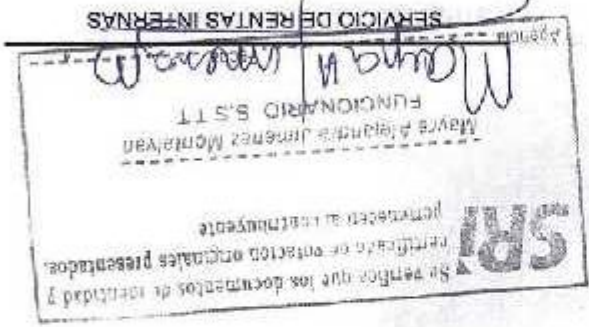 SRI
Se verifica que los documentos de identidad y
certificado de votación originales presentados,
pertenecen al contribuyente
Mayra Alejandra Jimenez Montalvan
FUNCIONARIO S.S TT
Agencia
SERVICIO DE RENTAS INTERNAS